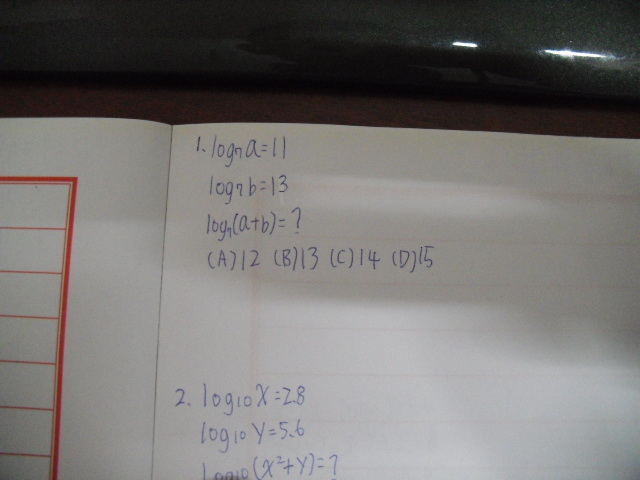 1. log₇a=11
log₇b=13
log₇(a+b)=?
(A)12 (B)13 (C)14 (D)15
2. log₁₀X=2.8
log₁₀Y=5.6
log₁₀(X²+Y)=?